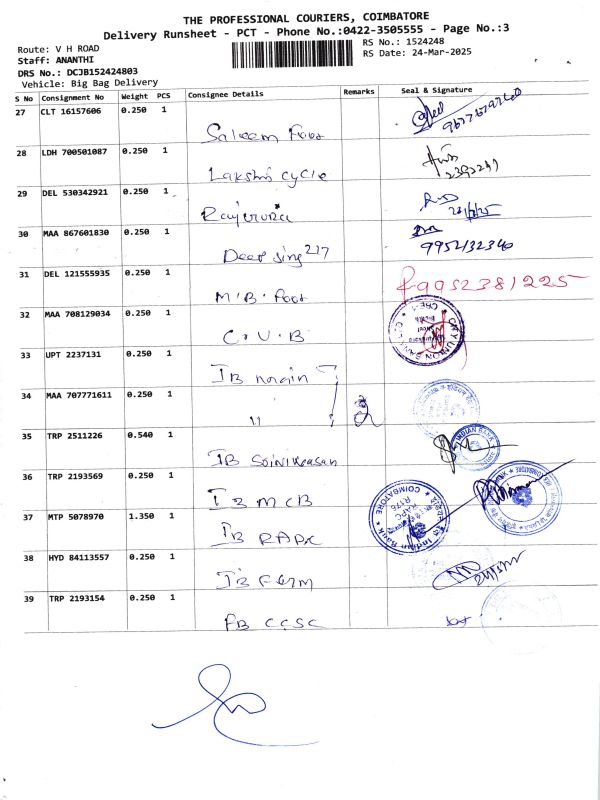 THE PROFESSIONAL COURIERS, COIMBATORE
Delivery Runsheet - PCT - Phone No.:0422-3505555 - Page No.:3
Route: V H ROAD
RS No.: 1524248
Staff: ANANTHI
RS Date: 24-Mar-2025
DRS No.: DCJB152424803
Vehicle: Big Bag Delivery
S No Consignment No Weight PCS Consignee Details Remarks Seal & Signature
27 CLT 16157606 0.250 1
Saleem
28 LDH 700501087 0.250 1
Lakshmi cycle
29 DEL 530342921 0.250 1
30 MAA 867601830 0.250 1
Deep Sing 217
9952132340
31 DEL 121555935 0.250 1
M.B. Foot
9952381225
32 MAA 708129034 0.250 1
C.U.B
CITY UNION BANK
33 UPT 2237131 0.250 1
IB
34 MAA 707771611 0.250 1
11
35 TRP 2511226 0.540 1
IB Srinivasan
INDIAN BANK
36 TRP 2193569 0.250 1
IB MCB
37 MTP 5078970 1.350 1
IB RAPC
Indian Bank
COIMBATORE
38 HYD 84113557 0.250 1
IB
39 TRP 2193154 0.250 1
CCSC